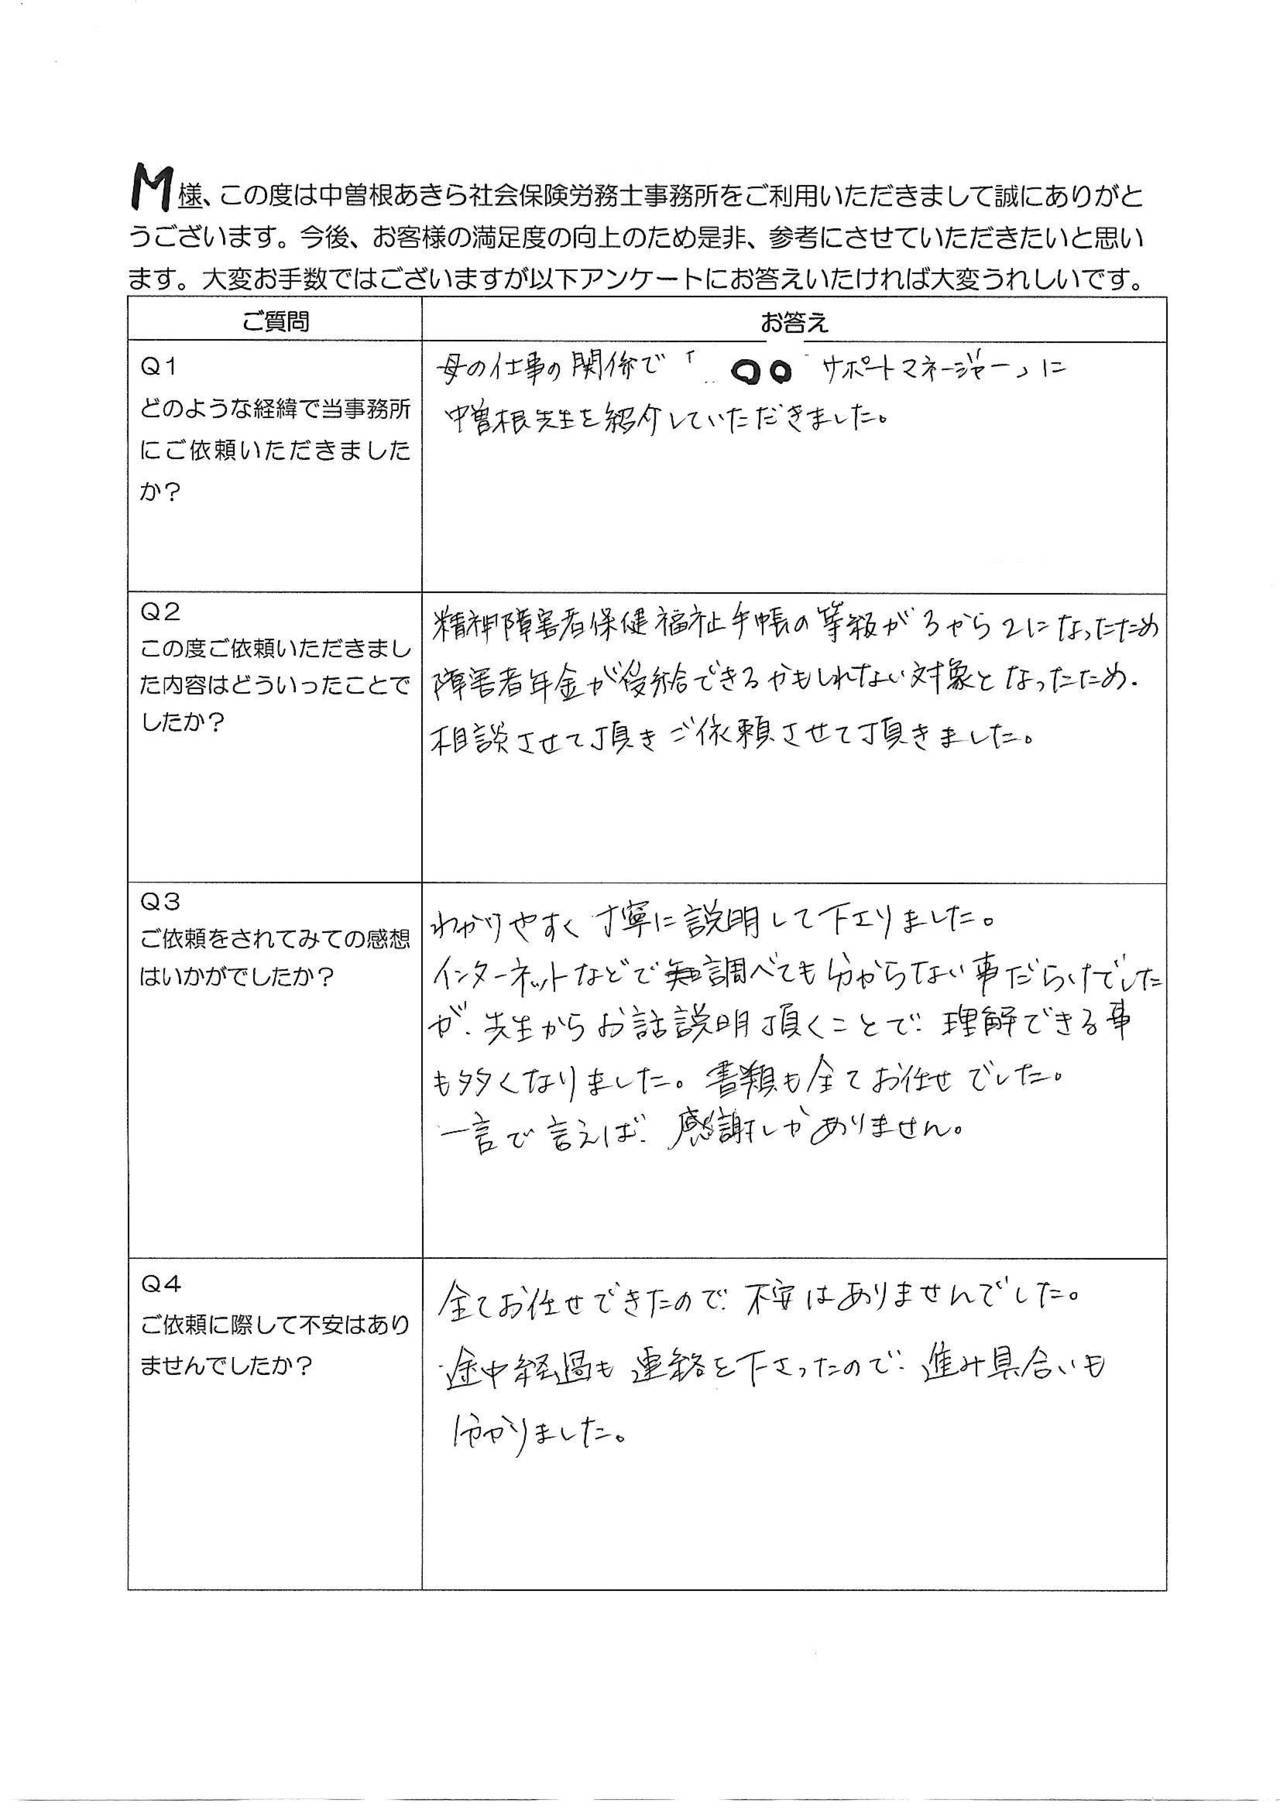 M様、この度は中曽根あきら社会保険労務士事務所をご利用いただきまして誠にありがと
うございます。今後、お客様の満足度の向上のため是非、参考にさせていただきたいと思い
ます。大変お手数ではございますが以下アンケートにお答えいたければ大変うれしいです。
ご質問
お答え
Q1
どのような経緯で当事務所
にご依頼いただきました
か？
母の仕事の関係で「○○サポートマネージャー」に
中曽根先生を紹介していただきました。
Q2
この度ご依頼いただきまし
た内容はどういったことで
したか？
精神障害者保健福祉手帳の等級が3から2になったため
障害者年金が受給できるかもしれない対象となったため、
相談させて頂きご依頼させて頂きました。
Q3
ご依頼をされてみての感想
はいかがでしたか？
わかりやすく丁寧に説明して下さりました。
インターネットなどで調べても分からない事だらけでした
が、先生からお話説明頂くことで、理解できる事
も多くなりました。書類も全てお任せでした。
一言で言えば、感謝しかありません。
Q4
ご依頼に際して不安はあり
ませんでしたか？
全てお任せできたので、不安はありませんでした。
途中経過も連絡を下さったので、進み具合いも
分かりました。